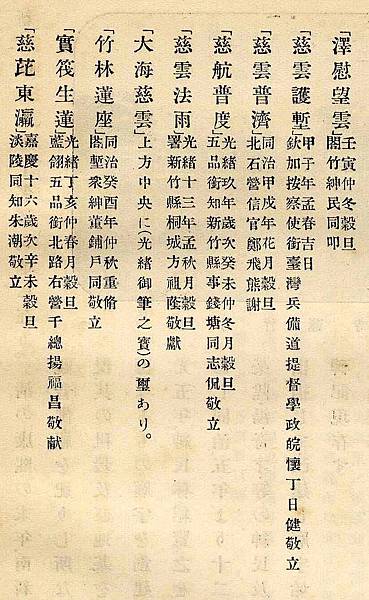 「澤慰望雲」壬寅仲冬穀旦
閤竹紳民同叩
「慈雲護塹」甲子年孟春吉日
欽加按察使銜臺灣兵備道提督學政皖懷丁日健敬立
「慈雲普濟」同治甲戌年花月穀旦
北石營信官鄭飛熊謝
「慈航普度」光緒玖年歲次癸未仲冬月穀旦
五品銜知新竹縣事錢塘同志侃敬立
「慈雲法雨」光緒十三年孟秋月穀旦
署新竹縣桐城方祖蔭敬獻
「大海慈雲」上方中央に(光緒御筆之寶)の璽あり。
「竹林蓮座」同治癸酉年仲秋重脩
闔塹衆紳董鋪戶同敬立
「寶筏生蓮」光緒丁亥仲春月穀旦
藍翎五品銜北路右營千總揚福昌敬献
「慈芘東瀛」嘉慶十六歲次辛未穀旦
淡陵同知朱潮敬立